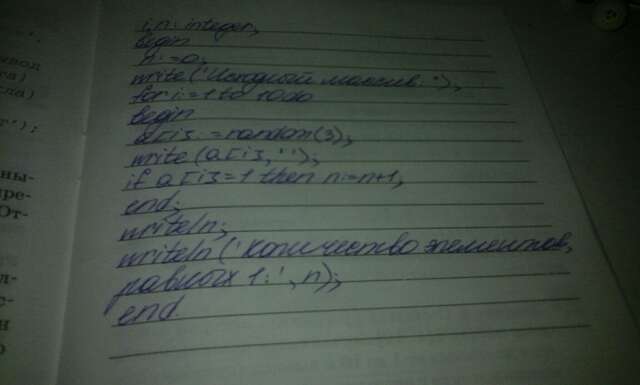 i,n: integer;
begin
n:=0;
write('Исходный массив: ');
for i:=1 to 10 do
begin
a[i]:=random(3);
write(a[i],' ');
if a[i]=1 then n:=n+1;
end;
writeln;
writeln('Количество элементов,
равных 1:', n);
end